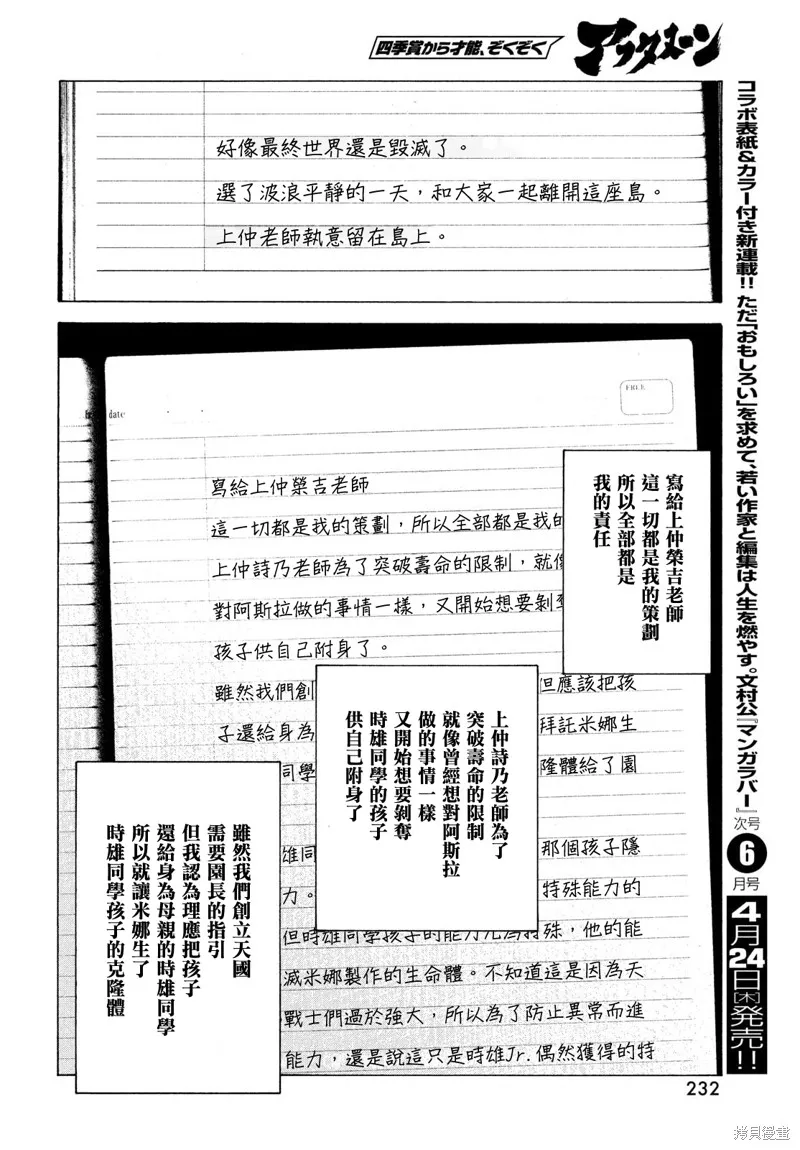 四季賞から才能、ぞくぞく
アフタヌーン
コラボ表紙&カラー付き新連載!! ただ「おもしろい」を求めて、若い作家と編集は人生を燃やす。文村公『マンガラバー』
次号
6
月号
4月24日[木]発売!!
好像最終世界還是毀滅了。
選了波浪平靜的一天，和大家一起離開這座島。
上仲老師執意留在島上。
date
FREE
寫給上仲榮吉老師
這一切都是我的策劃，所以全部都是我的
上仲詩乃老師為了突破壽命的限制，就像
對阿斯拉做的事情一樣，又開始想要剝奪
孩子供自己附身了。
雖然我們創
但應該把孩
子還給身為
拜託米娜生
同學
隆體給了園
雄同
那個孩子隱
力。
特殊能力的
但時雄同學孩子的能力尤為特殊，他的能
滅米娜製作的生命體。不知道這是因為天
戰士們過於強大，所以為了防止異常而進
能力，還是說這只是時雄Jr.偶然獲得的特
寫給上仲榮吉老師
這一切都是我的策劃
所以全部都是
我的責任
上仲詩乃老師為了
突破壽命的限制
就像曾經想對阿斯拉
做的事情一樣
又開始想要剝奪
時雄同學的孩子
供自己附身了
雖然我們創立天國
需要園長的指引
但我認為理應把孩子
還給身為母親的時雄同學
所以就讓米娜生了
時雄同學孩子的克隆體
232
拷貝漫畫